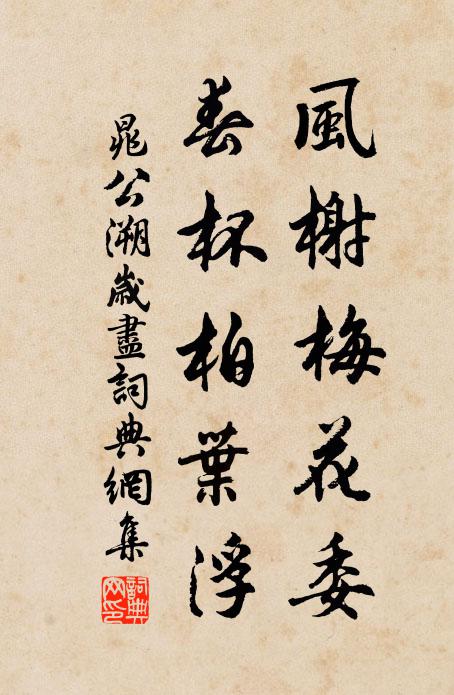 風榭梅花委
春杯柏葉浮
晁公溯歲盡詞典網集
詞典網印